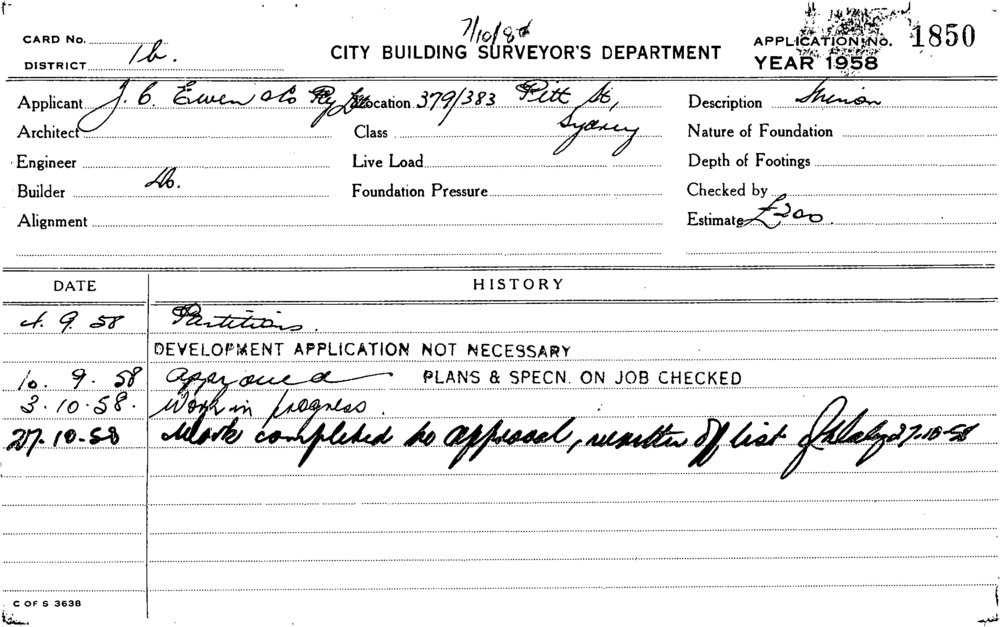 7/10/8
CARD No. CITY BUILDING SURVEYOR'S DEPARTMENT APPLICATION No. 1850
DISTRICT 1b. YEAR 1958
Applicant J. C. Ewen & Co Pty Ltd Location 379/383 Pitt St, Description
Architect Class Sydney Nature of Foundation
Engineer Live Load Depth of Footings
Builder Do. Foundation Pressure Checked by
Alignment Estimate £200
DATE HISTORY
4. 9. 58 Partitions.
DEVELOPMENT APPLICATION NOT NECESSARY
10. 9. 58 Approved PLANS & SPECN. ON JOB CHECKED
3.10.58. Work in progress.
27.10.58 Work completed to approval, off list 27.10.58
C OF S 3638